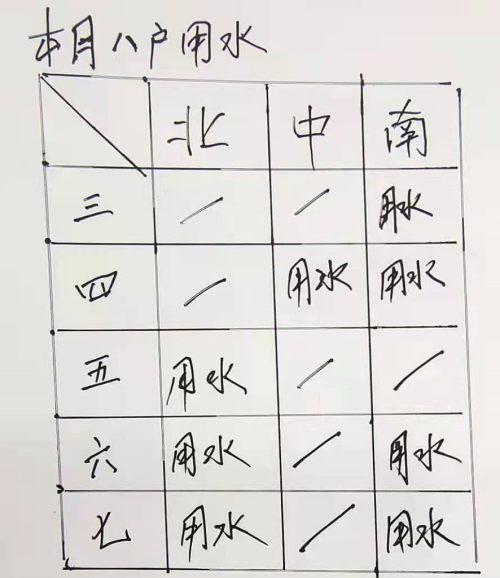 本月八户用水
北 中 南
三 / / 用水
四 / 用水 用水
五 用水 / /
六 用水 / 用水
七 用水 / 用水